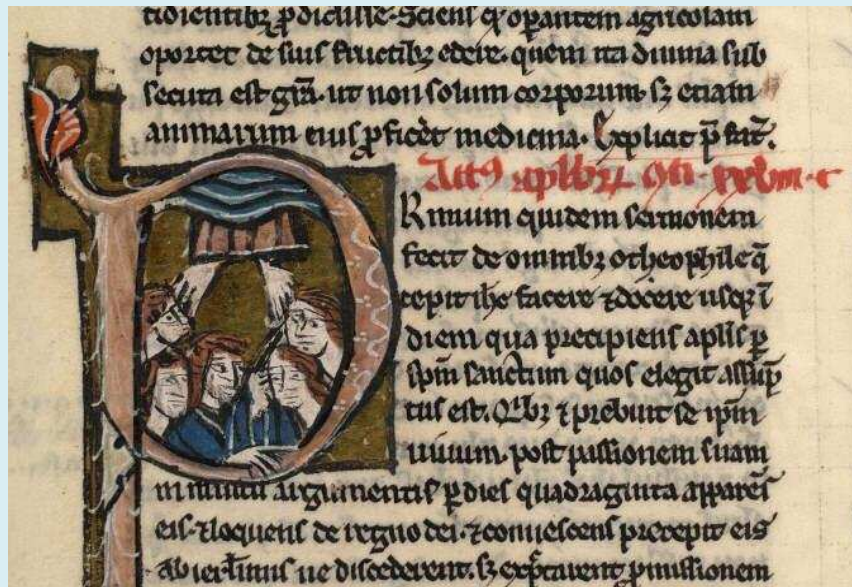 tidientibꝫ ꝓdidisse. Sciens qͥ oꝑantem agricolam
oportet de suis fructibꝫ edere. quem ita diuina sub
secuta est gr̃a. ut non solum corporum. sꝫ etiam
animarum eius ꝓficẽt medicina. Explicit p̃fat̃.
Actꝰ aplõrꝝ
Rimum quidem sermonem
fecit de omnibꝫ o theophile q̃
cepit ihc̃ facere ⁊ docere usqꝫ ĩ
diem qua precipiens aplĩs ꝑ
sp̃m sanctum quos elegit assũp
tus est. Qͥbꝫ ⁊ prebuit se ip̃m
uiuum. post passionem suam
in multis argumentis ꝑ dies quadraginta apparẽs
eis. ⁊ loquens de regno dei. ⁊ conuescens precepit eis
ab ierl̃imis ne discederent. sꝫ exp̃ctarent ꝓmissionem